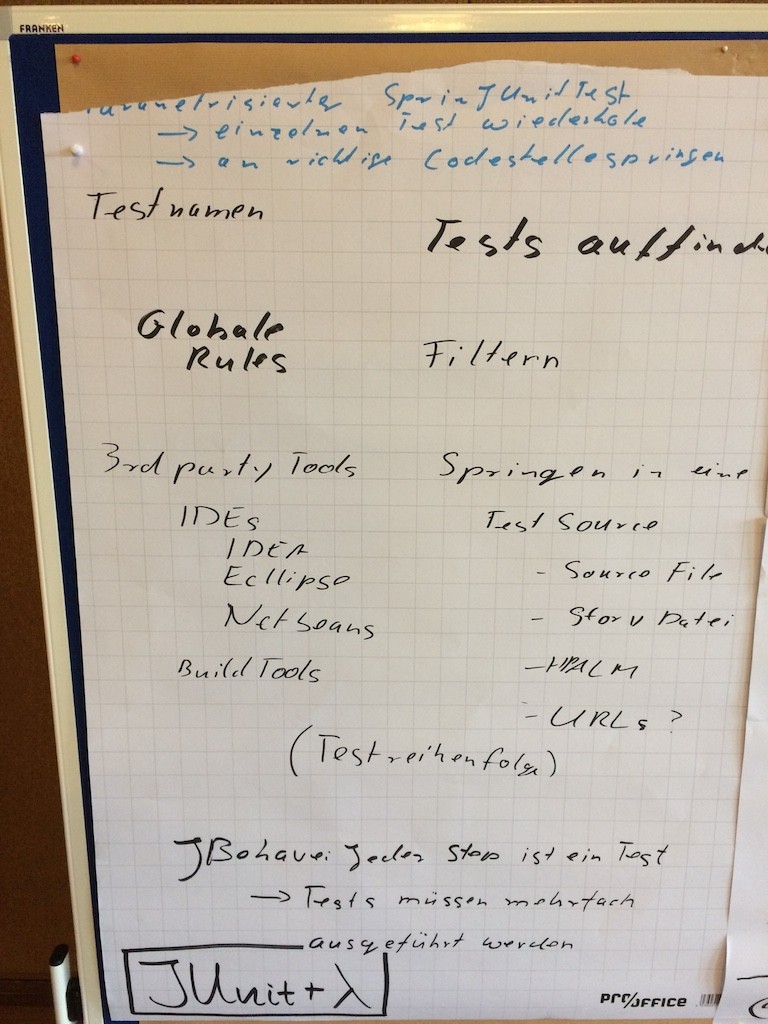 FRANKEN
Parametrisierter SprinJUnitTest
→ einzelnen Test wiederhole
→ an richtige Codestellespringen
Testnamen
Tests auffinde
Globale
Rules
Filtern
3rd party Tools
Springen in eine
IDEs
Test Source
IDEA
- Source File
Ecllipse
- Story Datei
Netbeans
- HPALM
Build Tools
- URLs ?
(Testreihenfolge)
JBehave: Jeder Step ist ein Test
→ Tests müssen mehrfach
ausgeführt werden
JUnit + λ
PRO/OFFICE